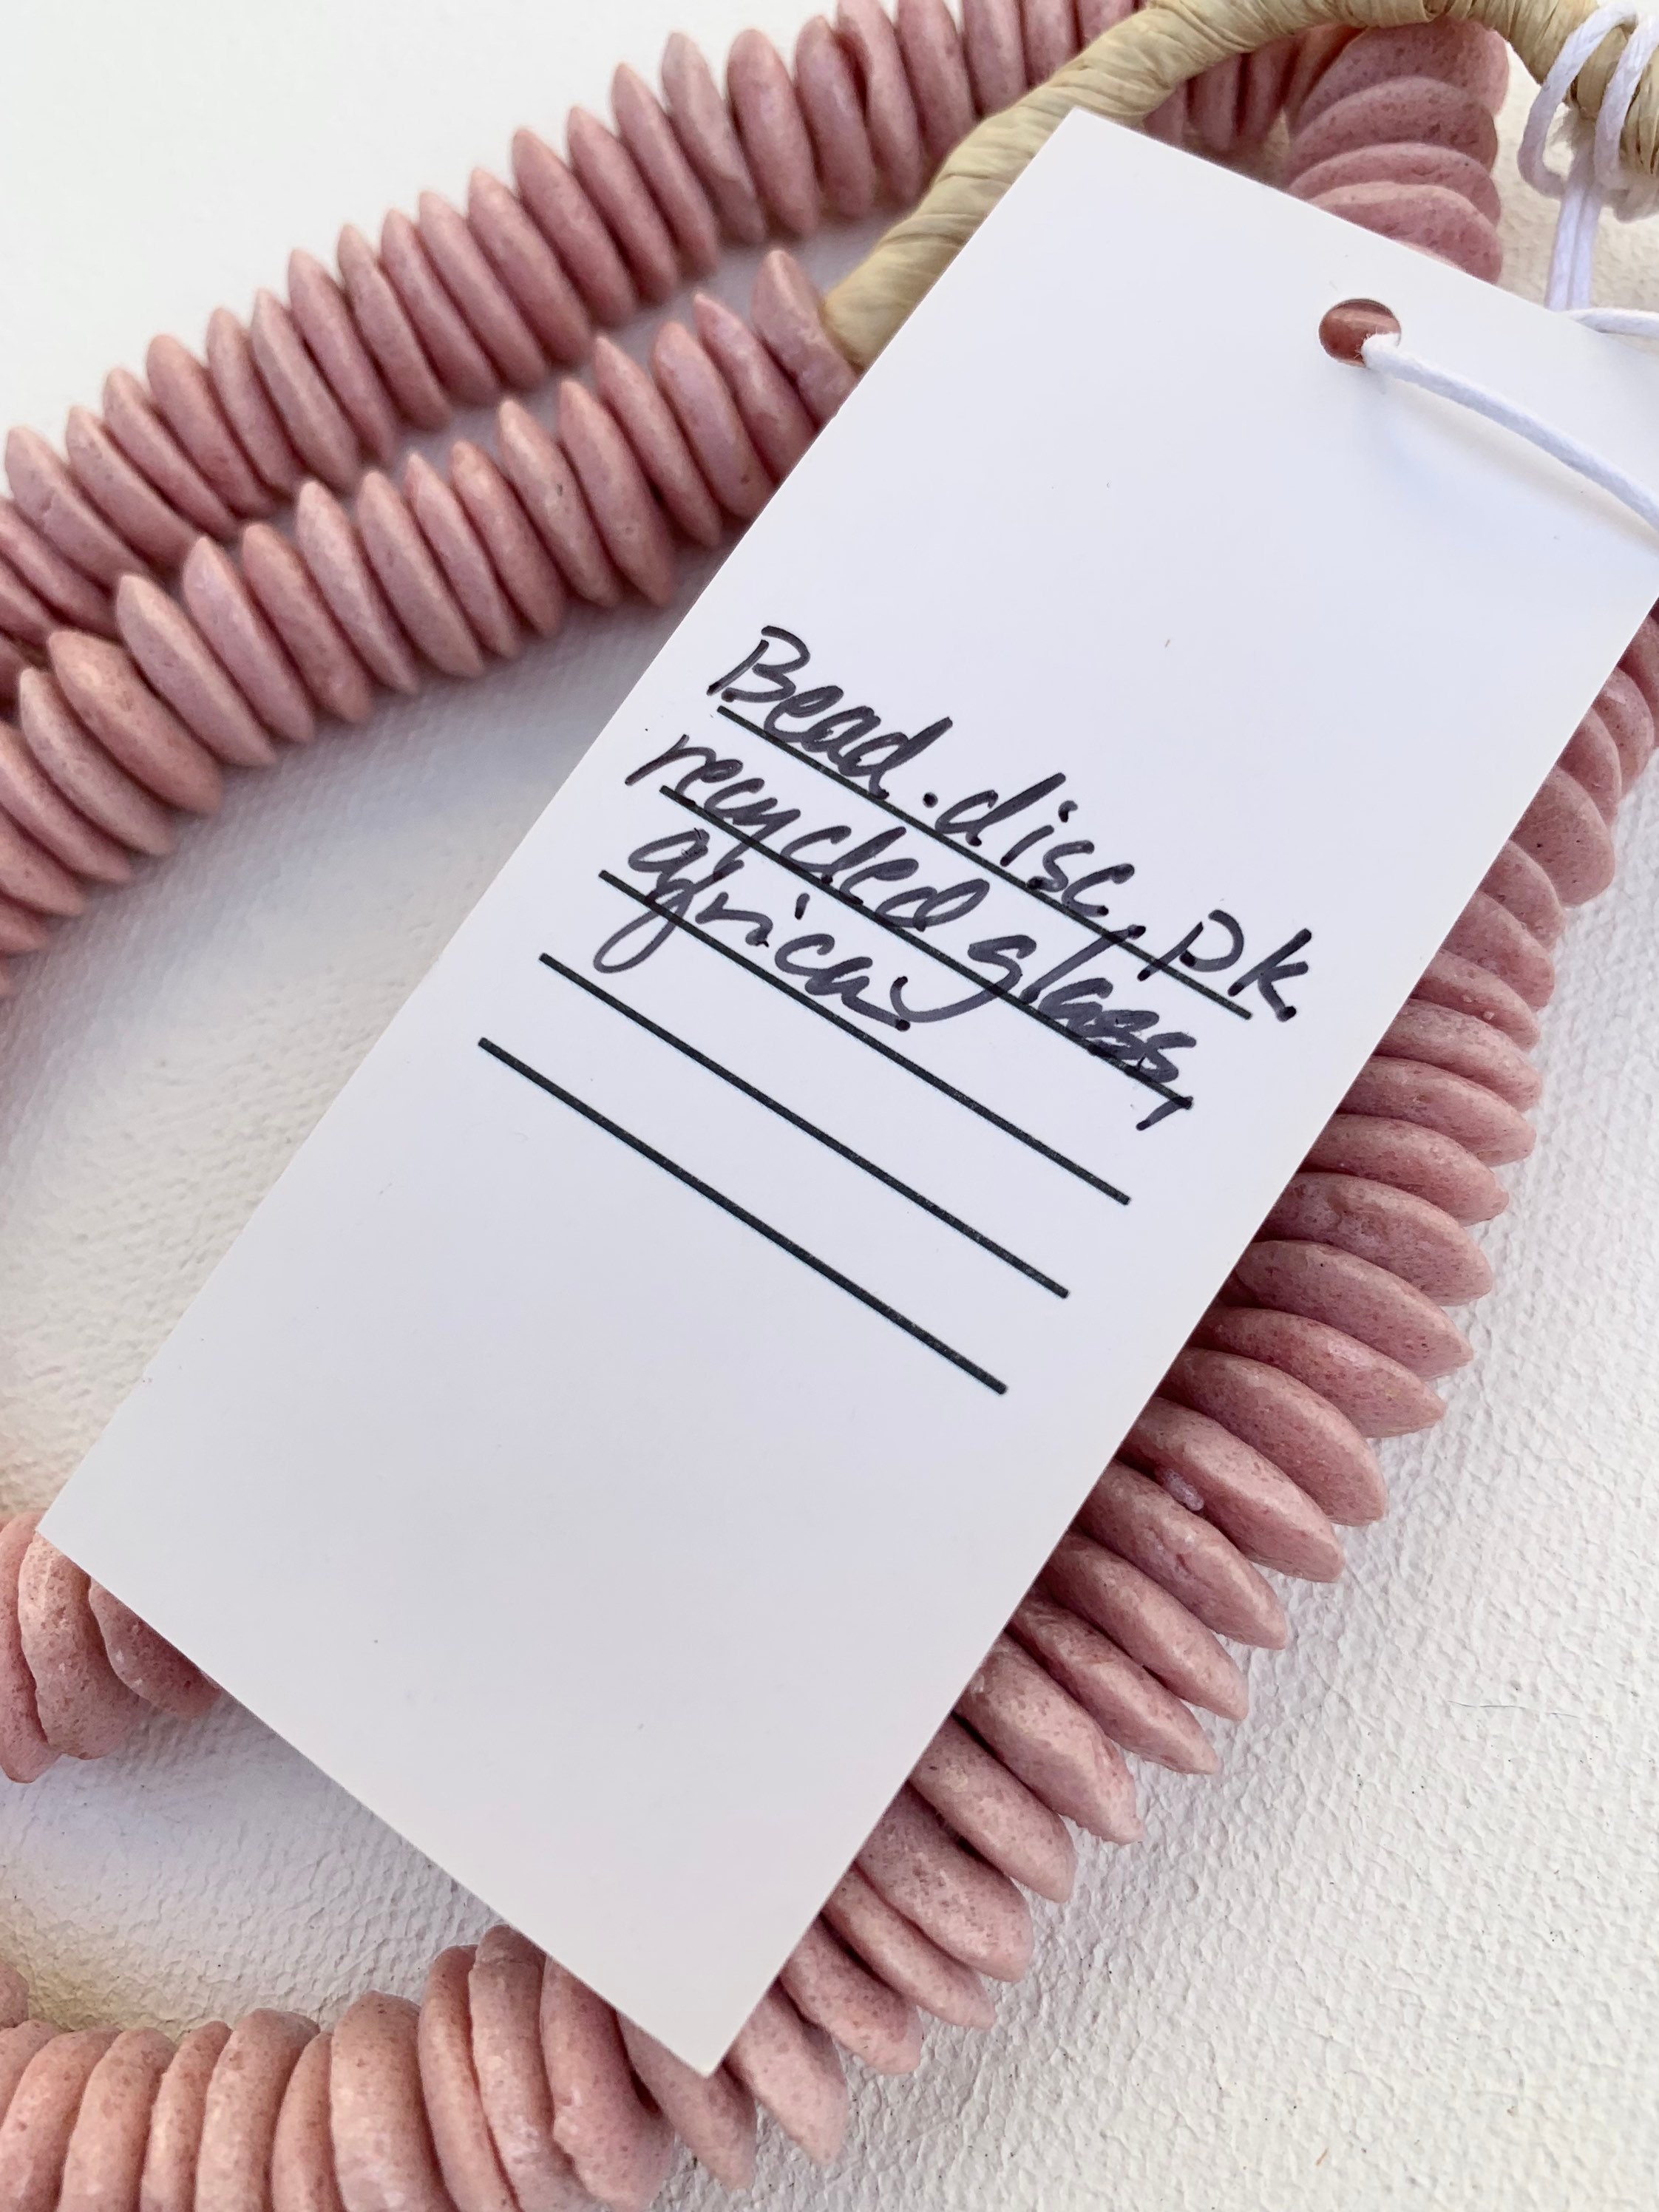 Bead. disc, pk
recycled glass,
africa